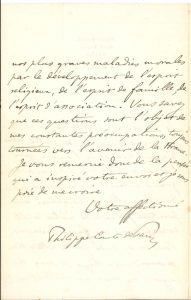 nos plus graves maladies morales
par le développement de l'esprit
religieux, de l'esprit de famille, de
l'esprit d'association. Vous savez
que ces questions sont l'objet de
mes constantes préoccupations, toujours
tournées vers l'avenir de la France.
Je vous remercie donc de la pensée
qui a inspiré votre envoi et je vous
prie de me croire
Votre affectionné
Philippe Comte de Paris